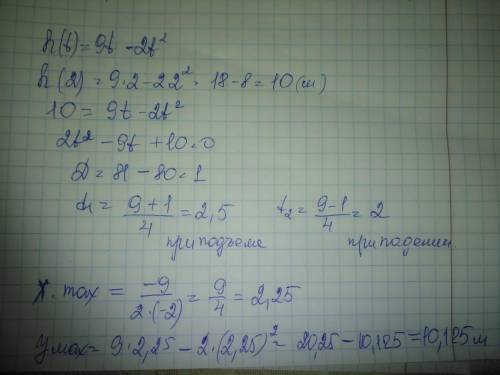 h(t) = 9t - 2t²
h(2) = 9·2 - 2·2² = 18 - 8 = 10 (м)
10 = 9t - 2t²
2t² - 9t + 10 = 0
D = 81 - 80 = 1
t₁ = (9+1)/4 = 2,5 t₂ = (9-1)/4 = 2
при подъеме при падении.
X. max = -9/(2·(-2)) = 9/4 = 2,25
Y max = 9·2,25 - 2·(2,25)² = 20,25 - 10,125 = 10,125 м